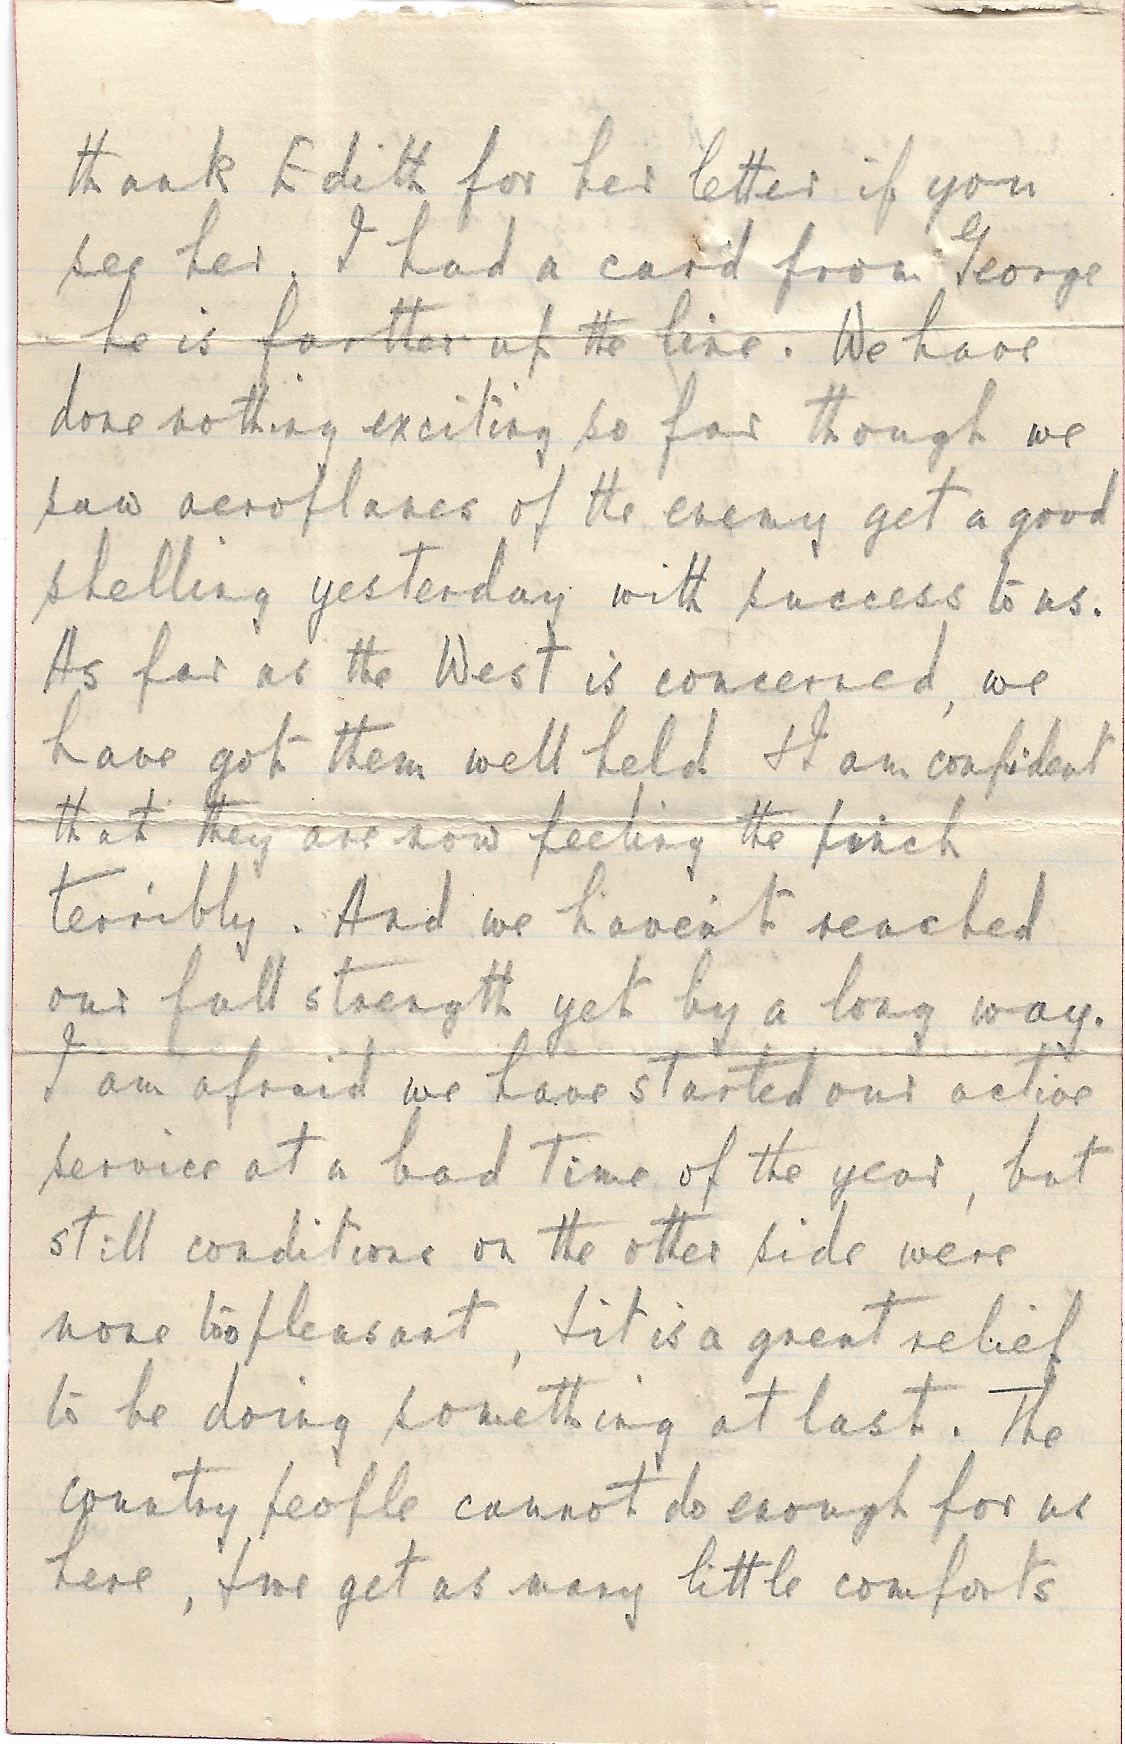 thank Edith for her letter if you
see her. I had a card from George
he is farther up the line. We have
done nothing exciting so far though we
saw aeroplanes of the enemy get a good
shelling yesterday with success to us.
As far as the West is concerned, we
have got them well held & I am confident
that they are now feeling the pinch
terribly. And we haven't reached
our full strength yet by a long way.
I am afraid we have started our active
service at a bad time of the year, but
still conditions on the other side were
none too pleasant, & it is a great relief
to be doing something at last. The
country people cannot do enough for us
here, & we get as many little comforts